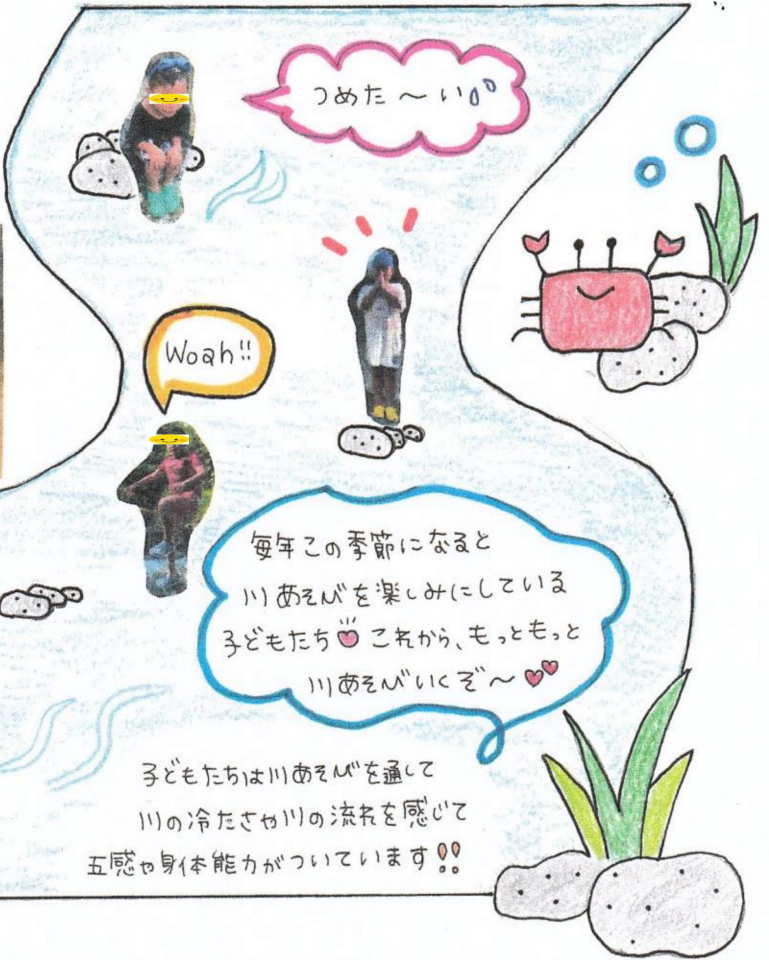 つめた〜い
Woah!!
毎年この季節になると
川あそびを楽しみにしている
子どもたち♡これから、もっともっと
川あそびいくぞ〜♡♡
子どもたちは川あそびを通して
川の冷たさや川の流れを感じて
五感や身体能力がついています!!